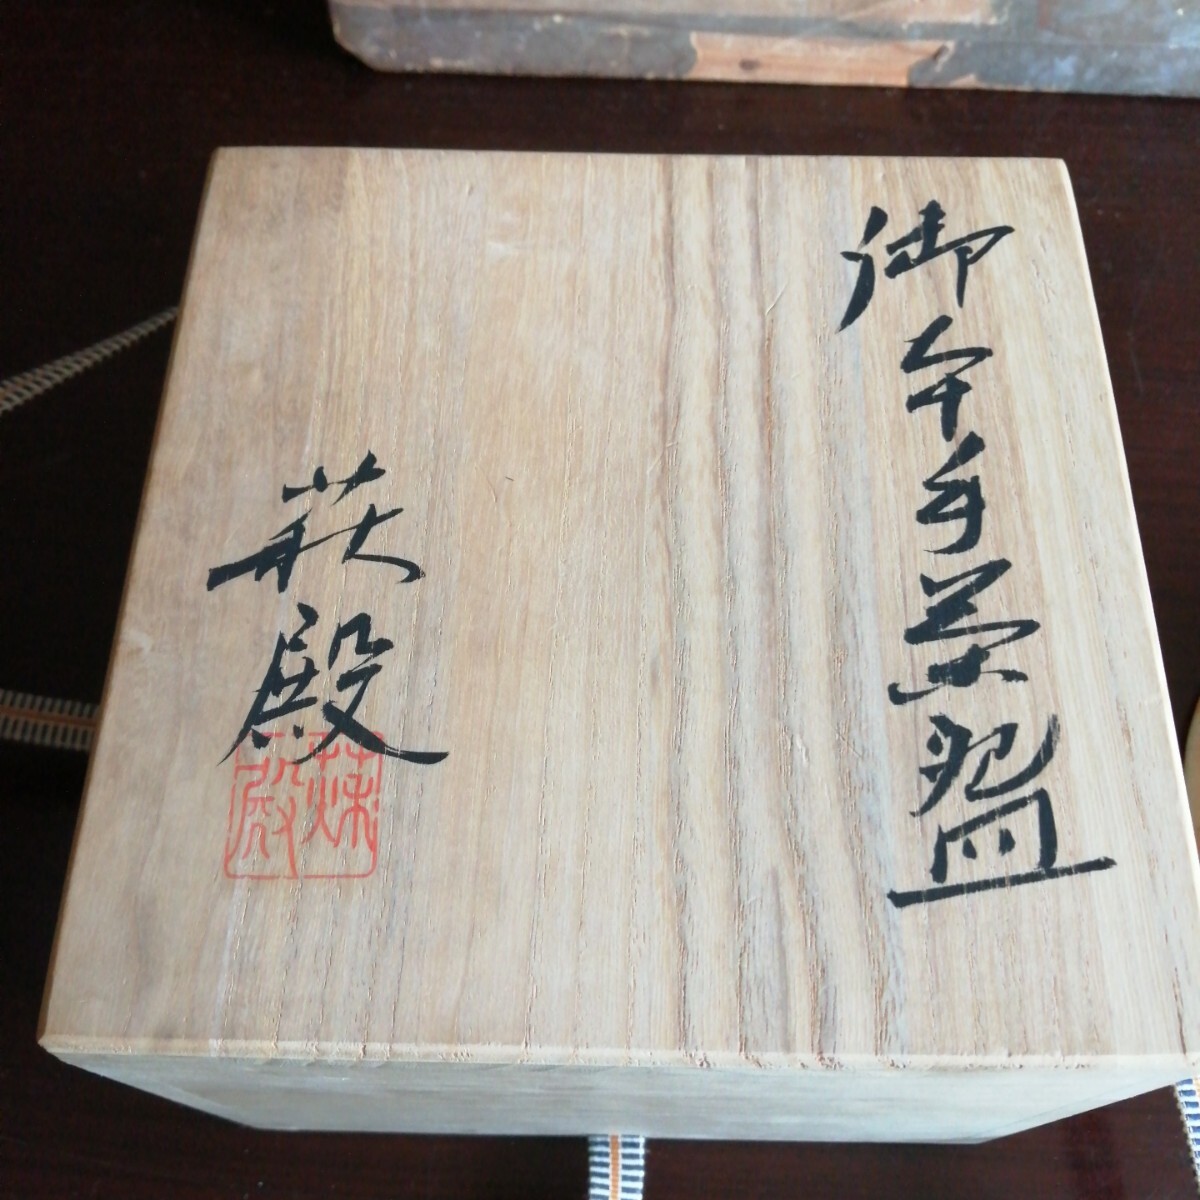 御本手茶盌
萩殿
萩殿